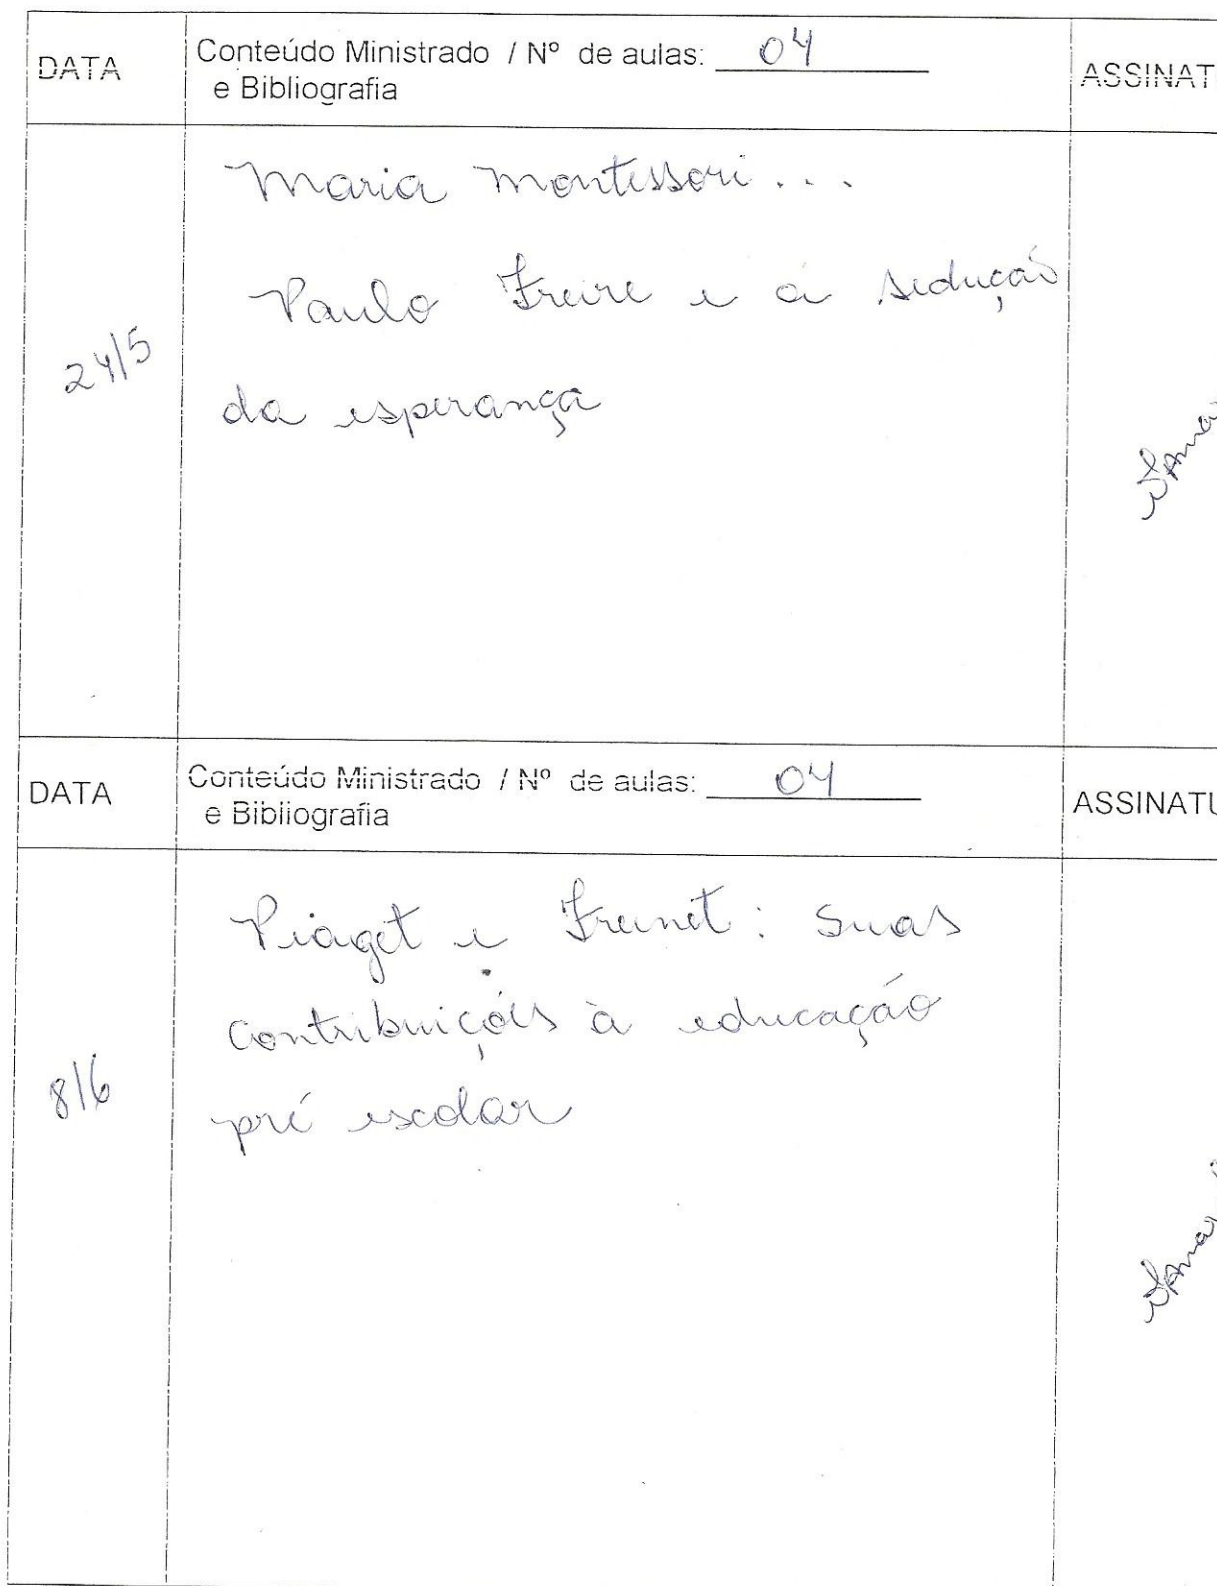 DATA
Conteúdo Ministrado / Nº de aulas: 04
e Bibliografia
ASSINAT
Maria Montessori...
Paulo Freire e a sedução
da esperança
24/5
DATA
Conteúdo Ministrado / Nº de aulas: 04
e Bibliografia
ASSINATU
Piaget e Freinet: Suas
Contribuições à educação
pré escolar
8/6